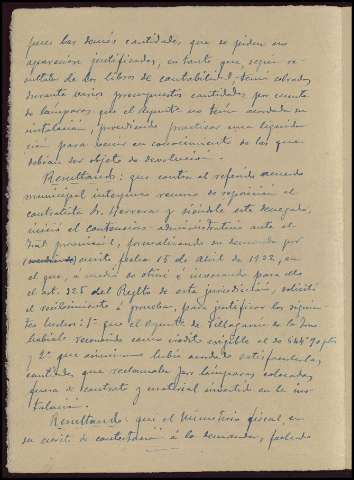 pues las demás cantidades, que se piden no
aparecían justificadas, en tanto que, según re-
sultaba de los libros de contabilidad, tenía cobradas
durante varios presupuestos cantidades por cuenta
de lámparas que el Ayunto no tenía acordada su
instalación, procediendo practicar una liquida-
ción para venir en conocimiento de las que
debían ser objeto de devolución.-
Resultando: que contra el referido acuerdo
municipal interpuso recurso de reposición el
contratista Sr. Herrera y siéndole este denegado,
inició el contencioso administrativo ante el
Tral provincial, formalizando su demanda por
escrito fecha 15 de Abril de 1932, en
el que, á medio de otrosí é invocando para ello
el art. 325 del Reglto de esta jurisdicción, solicitó
el recibimiento á prueba, para justificar los siguien-
tes hechos: 1º que el Ayunto de Villagarcía de la Torre
había reconocido como crédito exigible el de 644'70 pts
y 2º que asimismo había acordado satisfacerle las
cantidades que reclamaba por lámparas colocadas
fuera de contrato y material invertido en la ins-
talación.
Resultando: que el Ministerio fiscal, en
su escrito de contestación á la demanda,